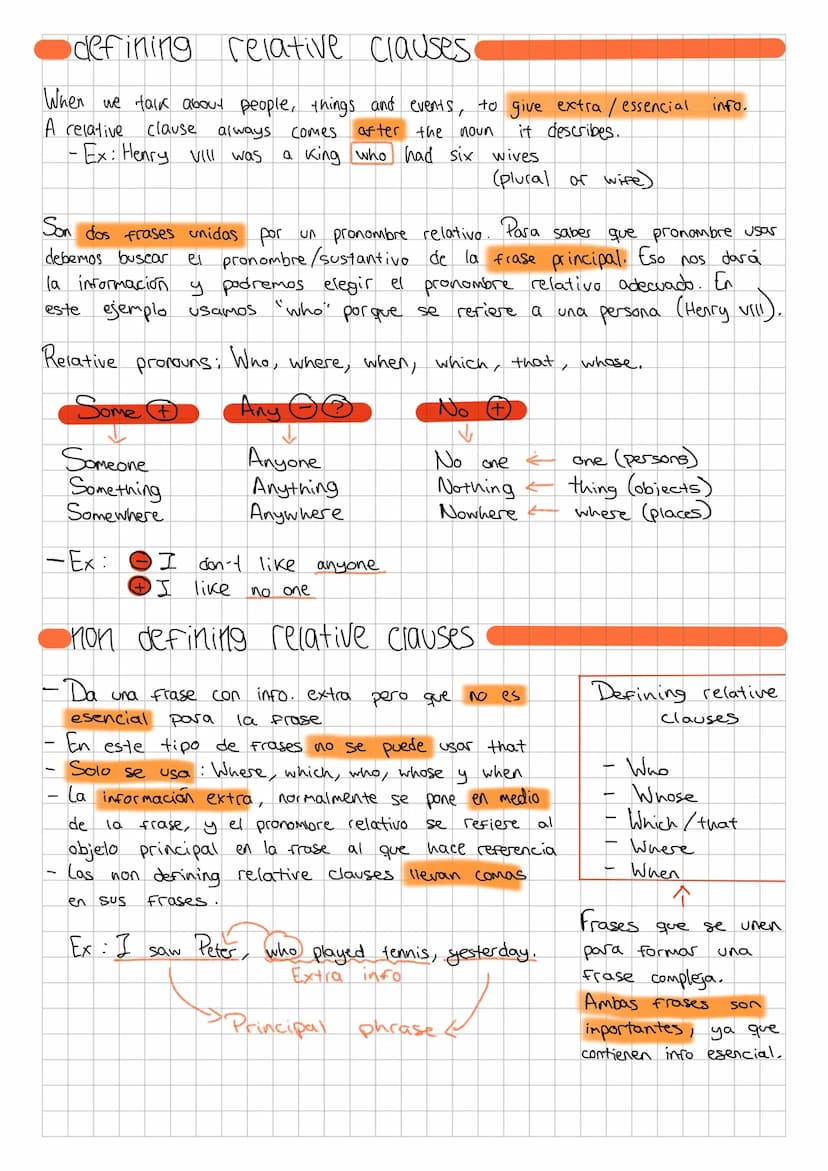 defining relative clauses
When we talk about people, things and events, to give extra/essencial info.
A relative clause always comes after the noun it describes.
- Ex: Henry VIII was a king who had six wives
(plural of wife)
Son dos frases unidas por un pronombre relativo. Para saber que pronombre usar
debemos buscar el pronombre/sustantivo de la frase principal. Eso nos dará
la información y podremos elegir el pronombre relativo adecuado. En
este ejemplo usamos "who" porque se refiere a una persona (Henry VIII).
Relative pronouns: Who, where, when, which, that, whose.
Some + Any - ? No +
Someone Anyone No one ← one (persons)
Something Anything Nothing ← thing (objects)
Somewhere Anywhere Nowhere ← where (places)
- Ex: - I don't like anyone
+ I like no one
non defining relative clauses
- Da una frase con info. extra pero que no es
esencial para la frase
- En este tipo de frases no se puede usar that
- Solo se usa: Where, which, who, whose y when
- La información extra, normalmente se pone en medio
de la frase, y el pronombre relativo se refiere al
objeto principal en la frase al que hace referencia
- Las non defining relative clauses llevan comas
en sus frases.
Ex: I saw Peter, who played tennis, yesterday.
Extra info
Principal phrase
Defining relative
clauses
- Who
- Whose
- Which/that
- Where
- When
Frases que se unen
para formar una
frase compleja.
Ambas frases son
importantes, ya que
contienen info esencial.